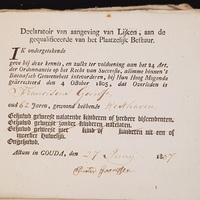 Declaratoir van aangeving van Lijken, aan de
gequalificeerde van het Plaatzelijk Bestuur.
IK ondergetekende
geve bij deze kennis, en zulks ter voldoening aan het 24 Art.
der Ordonnantie op het Recht van Successie, alomme binnen 't
Bataafsch Gemeenebest intevorderen, bij Hun Hoog Mogende
gearresteerd den 4 October 1805, dat Overleden is
Francisca
oud 62 Jaren, gewoond hebbende
Gehuwd geweest nalatende kinderen of verdere descendenten.
Gehuwd geweest zonder kinderen natelaten.
Gehuwd geweest met kind of kinderen uit een of
meerder Huwelijk.
Ongehuwd.
Actum in GOUDA, den 27 1807